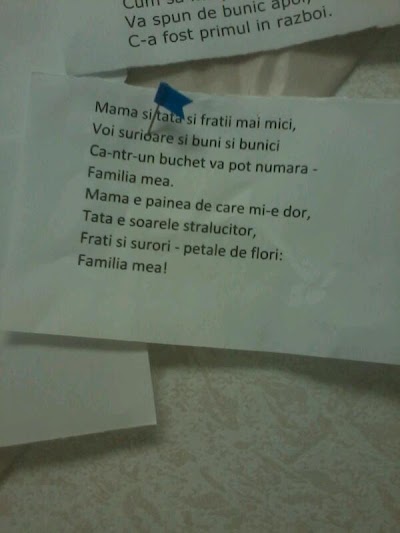 Va spun de bunic apoi,
C-a fost primul in razboi.
Mama si tata si fratii mai mici,
Voi surioare si buni si bunici
Ca-ntr-un buchet va pot numara -
Familia mea.
Mama e painea de care mi-e dor,
Tata e soarele stralucitor,
Frati si surori - petale de flori:
Familia mea!